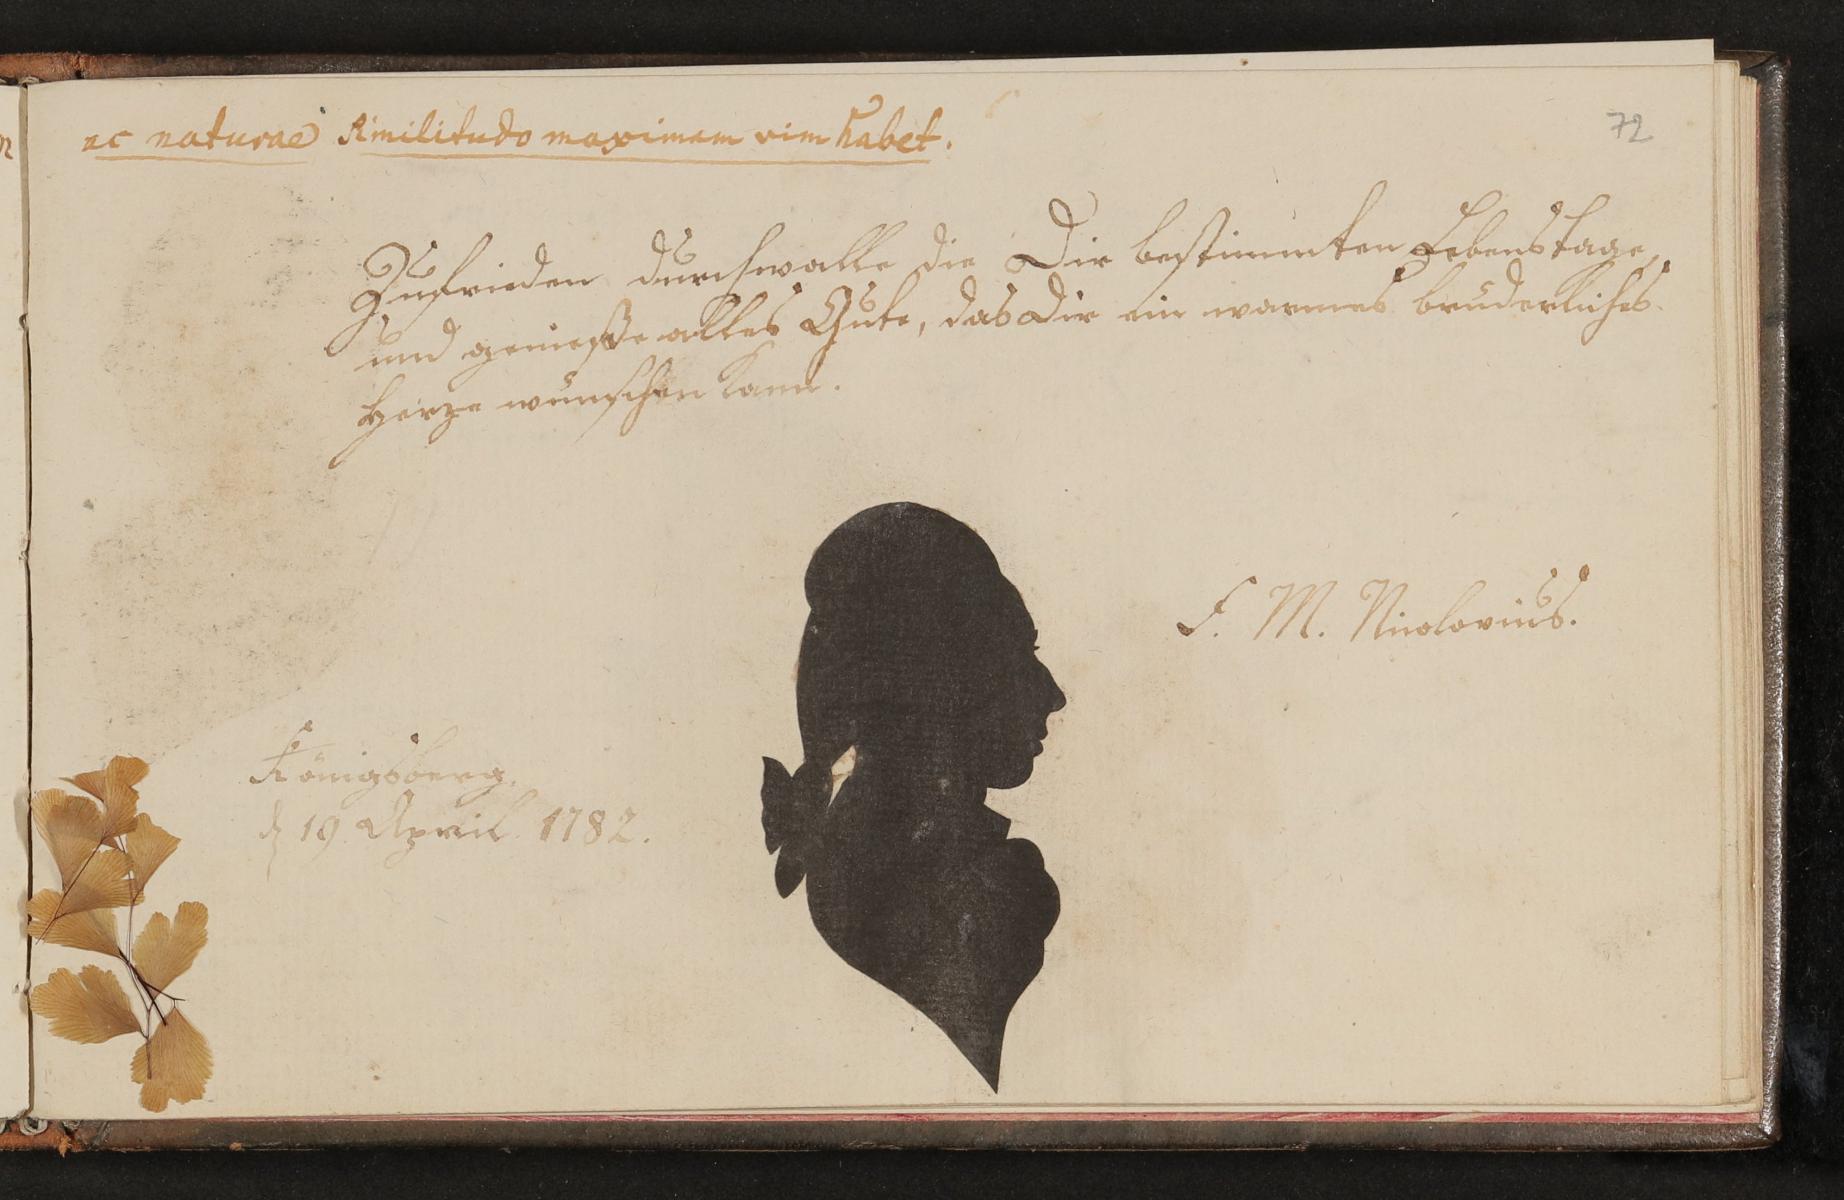 ac naturae similitudo maximam vim habet.
72
Zufrieden durchwalle die Dir bestimmten Lebenstage,
und genieße alles Gute, das Dir ein warmes brüderliches
Herze wünschen kann.
F. M. Nicolovius.
Königsberg,
d 19 April 1782.